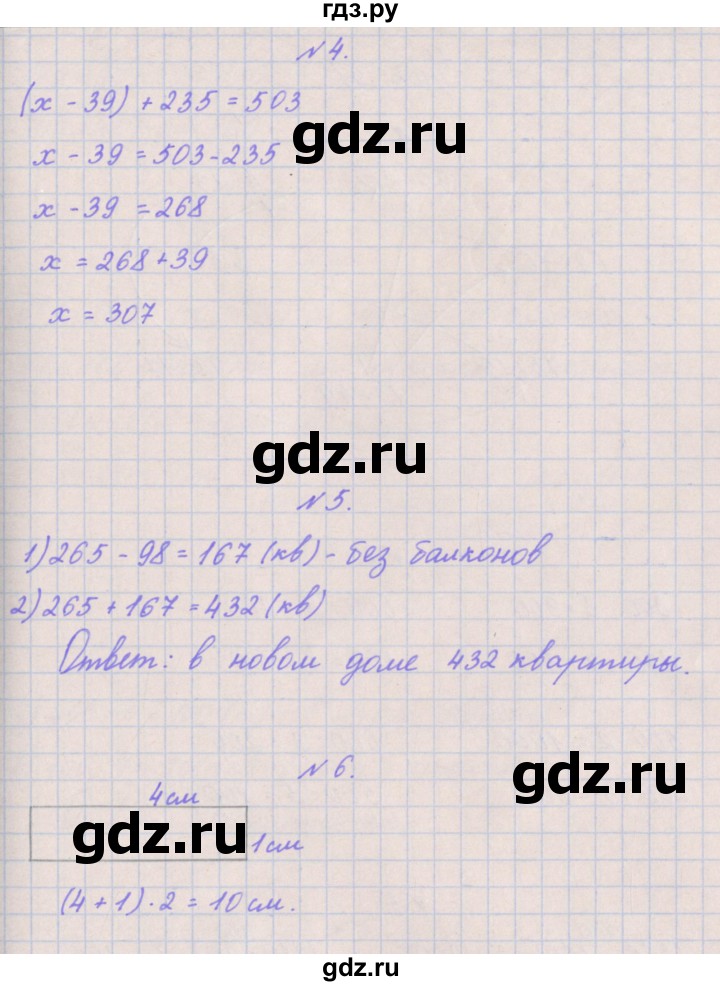 гдз.ру
№ 4.
(х - 39) + 235 = 503
gdz.ru
х - 39 = 503 - 235
х - 39 = 268
х = 268 + 39
х = 307
gdz.ru
№ 5.
1) 265 - 98 = 167 (кв) - без балконов
2) 265 + 167 = 432 (кв)
Ответ: в новом доме 432 квартиры.
№ 6.
gdz.ru
4 см
gdz.ru
1 см
(4 + 1) · 2 = 10 см.
gdz.ru